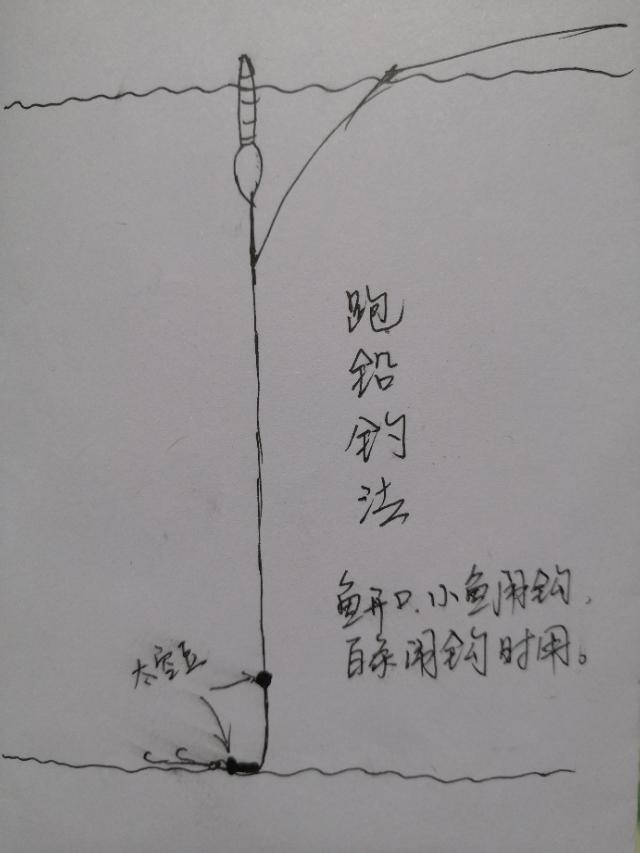 跑铅钓法
鱼开口、小鱼闹钩，
百条闹钩时用。
太空豆